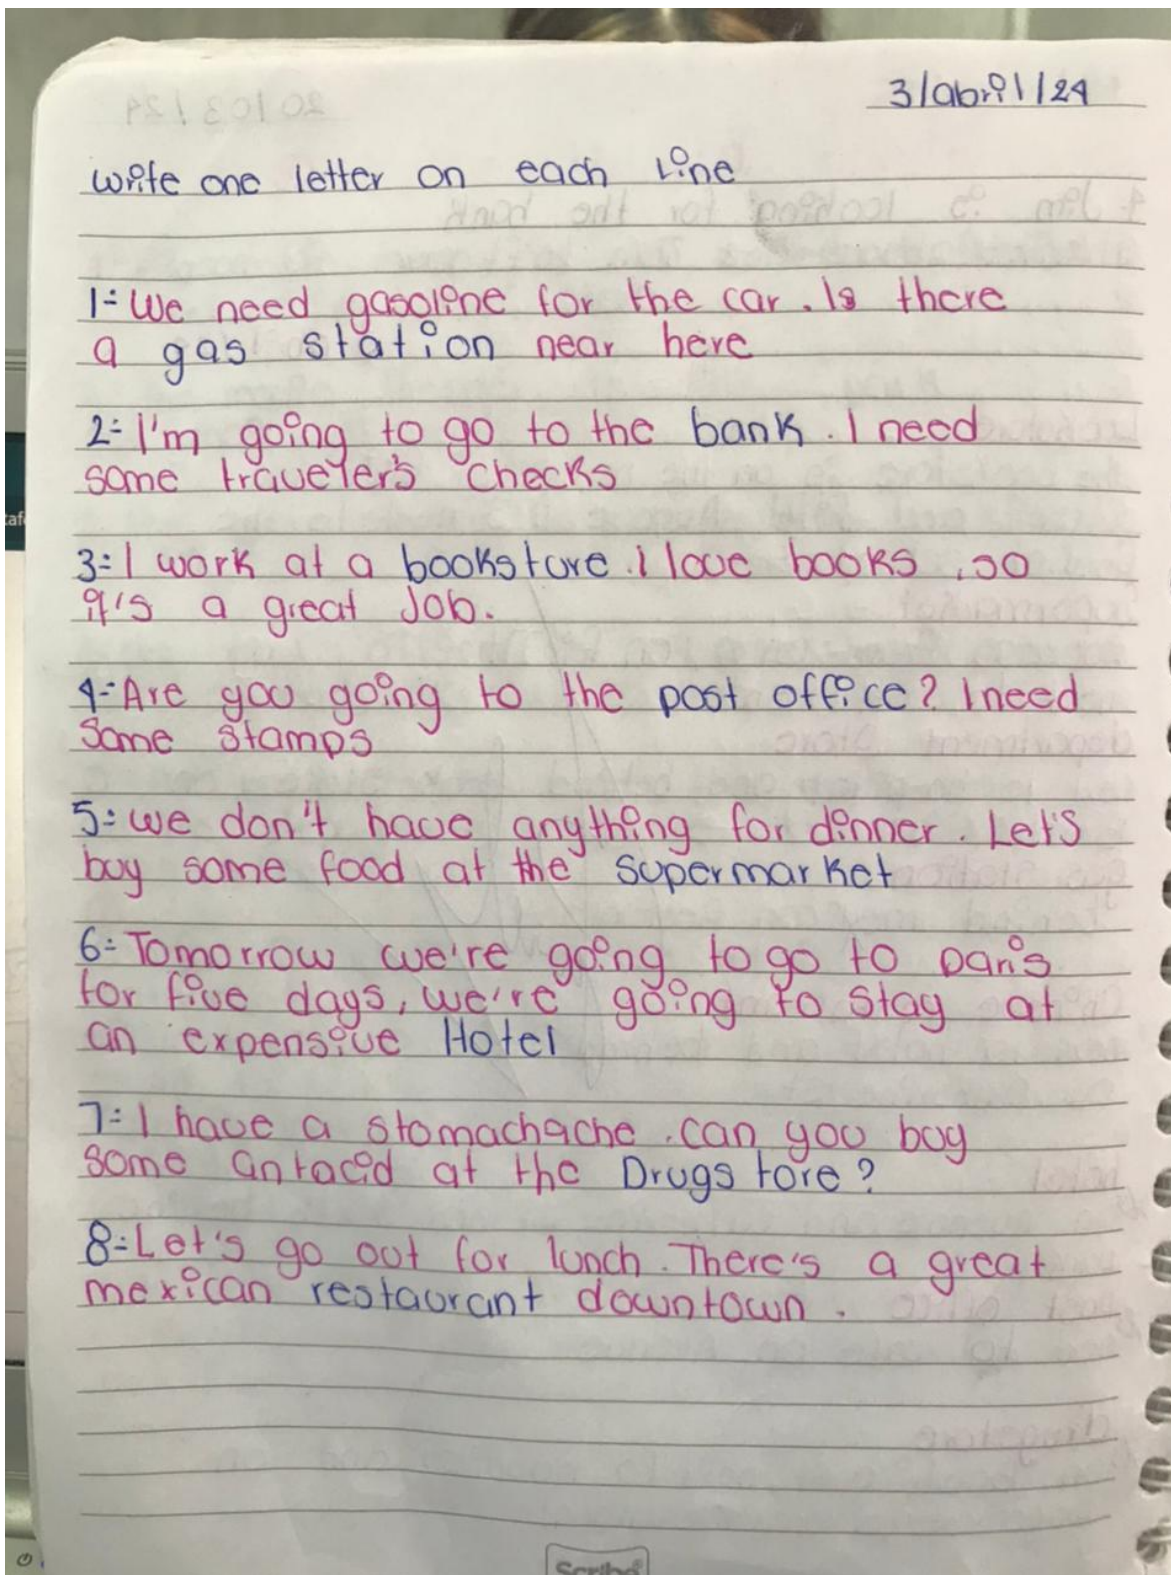 3/abril/24
write one letter on each Line
1= We need gasoline for the car. Is there
a gas station near here
2= I'm going to go to the bank. I need
some traveler's checks
3= I work at a bookstore. I love books, so
it's a great Job.
4= Are you going to the post office? I need
some stamps
5= we don't have anything for dinner. Let's
buy some food at the supermarket
6= Tomorrow we're going to go to paris
for five days, we're going to stay at
an expensive Hotel
7= I have a stomachache. can you buy
some antacid at the Drugstore?
8= Let's go out for lunch. There's a great
mexican restaurant downtown.
Scribe